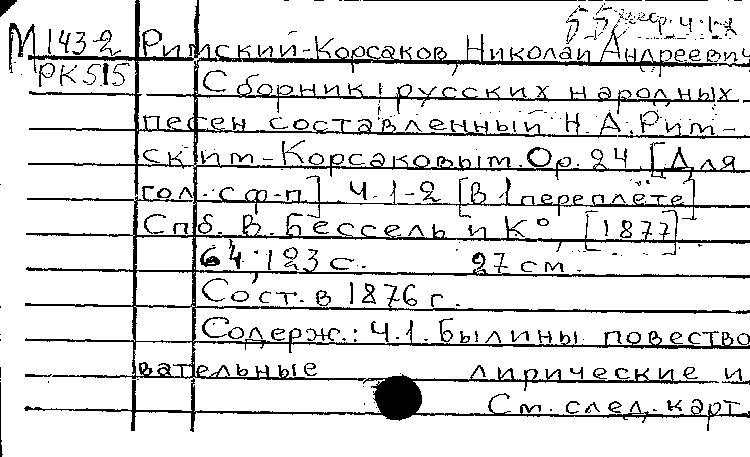 М 143-2 Римский-Корсаков, Николай Андреевич
РК515 Сборник русских народных
песен составленный Н.А. Рим-
ским-Корсаковым. Ор. 24 [Для
гол. с ф-п]. Ч. 1-2 [В 1 переплёте]
Спб. В. Бессель и К°, [1877]
64; 123 с. 27 см.
Сост. в 1876 г.
Содерж.: Ч.1. Былины повество
вательные лирические и
См. след. карт.